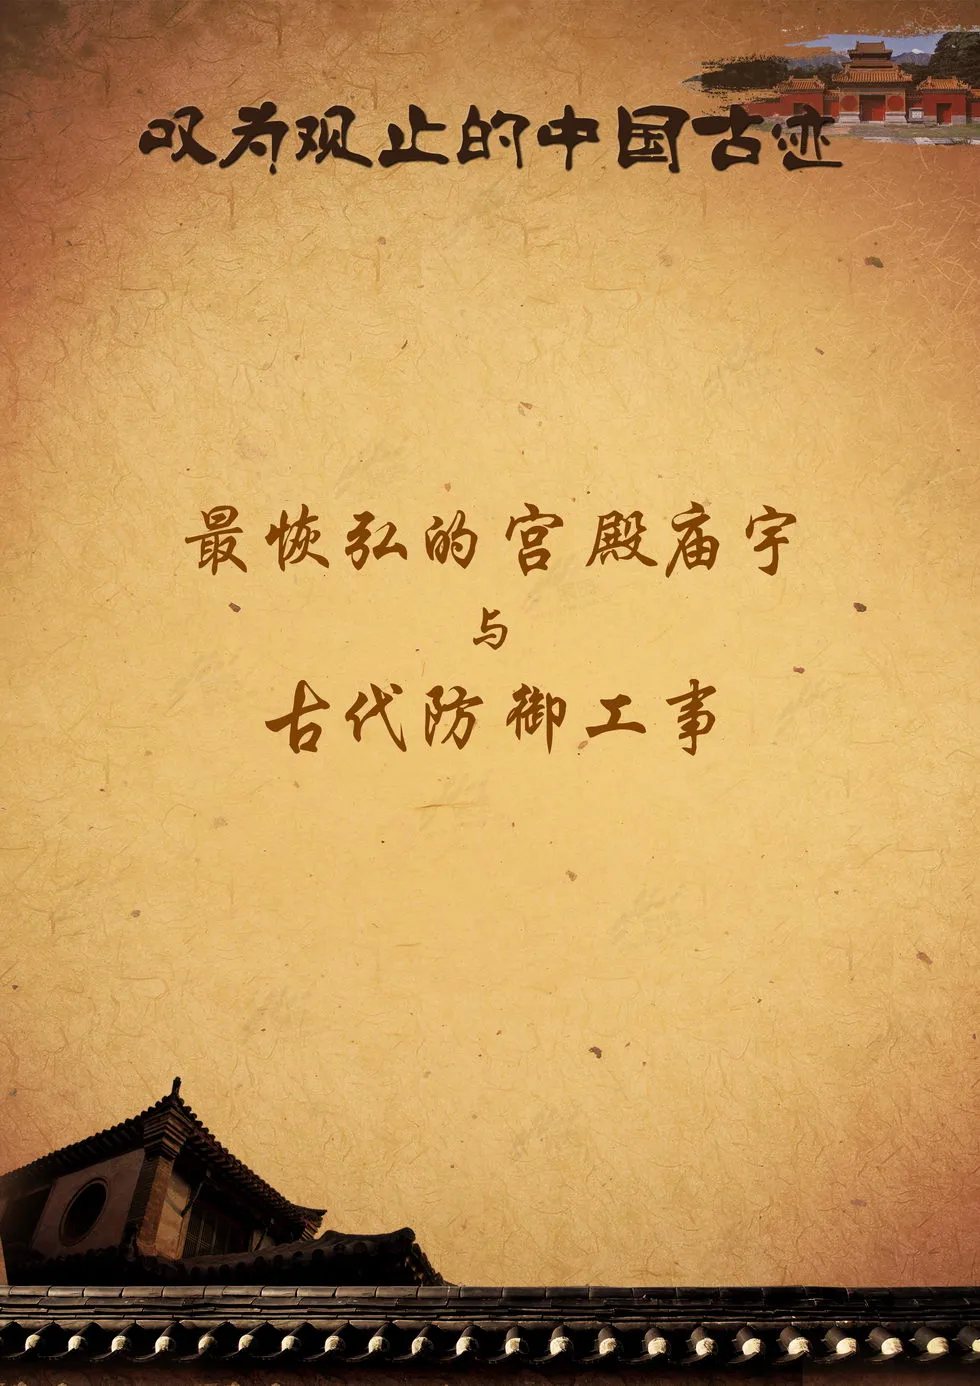 叹为观止的中国古迹
最恢弘的宫殿庙宇
与
古代防御工事